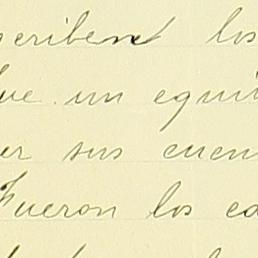 scriben los
que un equi
er sus cuen
Fueron los ca